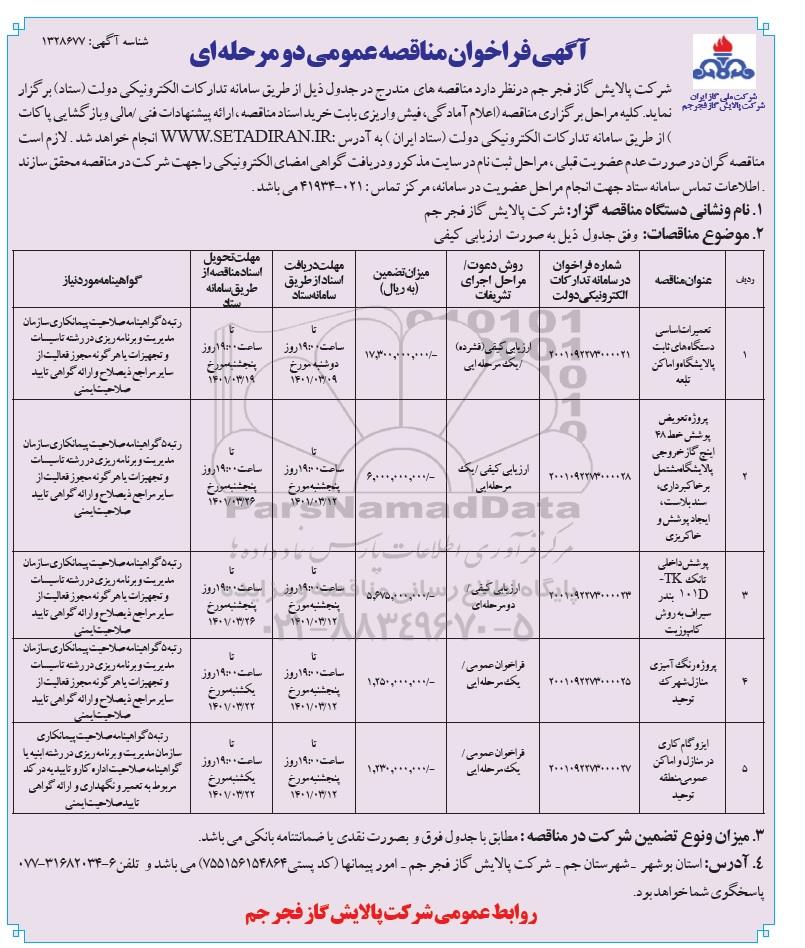 شناسه آگهی: ۱۳۲۸۶۷۷
آگهی فراخوان مناقصه عمومی دو مرحله‌ای
شرکت ملی گاز ایران
شرکت پالایش گاز فجر جم
شرکت پالایش گاز فجر جم درنظر دارد مناقصه های مندرج در جدول ذیل از طریق سامانه تدارکات الکترونیکی دولت (ستاد) برگزار
نماید. کلیه مراحل برگزاری مناقصه (اعلام آمادگی، فیش واریزی بابت خرید اسناد مناقصه، ارائه پیشنهادات فنی /مالی و بازگشایی پاکات
) از طریق سامانه تدارکات الکترونیکی دولت (ستاد ایران ) به آدرس :WWW.SETADIRAN.IR انجام خواهد شد . لازم است
مناقصه گران در صورت عدم عضویت قبلی ، مراحل ثبت نام در سایت مذکور و دریافت گواهی امضای الکترونیکی را جهت شرکت در مناقصه محقق سازند
. اطلاعات تماس سامانه ستاد جهت انجام مراحل عضویت در سامانه، مرکز تماس : ۰۲۱-۴۱۹۳۴ می باشد .
۱. نام ونشانی دستگاه مناقصه گزار: شرکت پالایش گاز فجر جم
۲. موضوع مناقصات: وفق جدول ذیل به صورت ارزیابی کیفی
ردیف
عنوان مناقصه
شماره فراخوان
در سامانه تدارکات
الکترونیکی دولت
روش دعوت/
مراحل اجرای
تشریفات
میزان تضمین
(به ریال)
مهلت دریافت
اسناد از طریق
سامانه ستاد
مهلت تحویل
اسناد مناقصه از
طریق سامانه
ستاد
گواهینامه مورد نیاز
۱
تعمیرات اساسی
دستگاه های ثابت
پالایشگاه و اماکن
تلعه
۲۰۰۱۰۹۲۲۷۳۰۰۰۰۲۱
ارزیابی کیفی (فشرده)
/ یک مرحله ایی
۱۷,۳۰۰,۰۰۰,۰۰۰/-
تا
ساعت ۱۹:۰۰ روز
دوشنبه مورخ
۱۴۰۱/۰۳/۰۹
تا
ساعت ۱۹:۰۰ روز
پنجشنبه مورخ
۱۴۰۱/۰۳/۱۹
رتبه ۵ گواهینامه صلاحیت پیمانکاری سازمان
مدیریت و برنامه ریزی در رشته تاسیسات
و تجهیزات یا هر گونه مجوز فعالیت از
سایر مراجع ذیصلاح و ارائه گواهی تایید
صلاحیت ایمنی
۲
پروژه تعویض
پوشش خط ۴۸
اینچ گاز خروجی
پالایشگاه مشتمل
بر خاکبرداری،
سند بلاست،
ایجاد پوشش و
خاکریزی
۲۰۰۱۰۹۲۲۷۳۰۰۰۰۲۸
ارزیابی کیفی / یک
مرحله ایی
۶,۰۰۰,۰۰۰,۰۰۰/-
تا
ساعت ۱۹:۰۰ روز
پنجشنبه مورخ
۱۴۰۱/۰۳/۱۲
تا
ساعت ۱۹:۰۰ روز
پنجشنبه مورخ
۱۴۰۱/۰۳/۲۶
رتبه ۵ گواهینامه صلاحیت پیمانکاری سازمان
مدیریت و برنامه ریزی در رشته تاسیسات
و تجهیزات یا هر گونه مجوز فعالیت از
سایر مراجع ذیصلاح و ارائه گواهی تایید
صلاحیت ایمنی
۳
پوشش داخلی
تانک TK-
۱۰۱D بندر
سیراف به روش
کامپوزیت
۲۰۰۱۰۹۲۲۷۳۰۰۰۰۲۳
ارزیابی کیفی /
دو مرحله ای
۵,۶۷۵,۰۰۰,۰۰۰/-
تا
ساعت ۱۹:۰۰ روز
پنجشنبه مورخ
۱۴۰۱/۰۳/۱۲
تا
ساعت ۱۹:۰۰ روز
پنجشنبه مورخ
۱۴۰۱/۰۳/۲۶
رتبه ۵ گواهینامه صلاحیت پیمانکاری سازمان
مدیریت و برنامه ریزی در رشته تاسیسات
و تجهیزات یا هر گونه مجوز فعالیت از
سایر مراجع ذیصلاح و ارائه گواهی تایید
صلاحیت ایمنی
۴
پروژه رنگ آمیزی
منازل شهرک
توحید
۲۰۰۱۰۹۲۲۷۳۰۰۰۰۲۵
فراخوان عمومی /
یک مرحله ایی
۱,۲۵۰,۰۰۰,۰۰۰/-
تا
ساعت ۱۹:۰۰ روز
پنجشنبه مورخ
۱۴۰۱/۰۳/۱۲
تا
ساعت ۱۹:۰۰ روز
یکشنبه مورخ
۱۴۰۱/۰۳/۲۲
رتبه ۵ گواهینامه صلاحیت پیمانکاری سازمان
مدیریت و برنامه ریزی در رشته تاسیسات
و تجهیزات یا هر گونه مجوز فعالیت از
سایر مراجع ذیصلاح و ارائه گواهی تایید
صلاحیت ایمنی
۵
ایزوگام کاری
در منازل و اماکن
عمومی منطقه
توحید
۲۰۰۱۰۹۲۲۷۳۰۰۰۰۲۷
فراخوان عمومی /
یک مرحله ایی
۱,۲۳۰,۰۰۰,۰۰۰/-
تا
ساعت ۱۹:۰۰ روز
پنجشنبه مورخ
۱۴۰۱/۰۳/۱۲
تا
ساعت ۱۹:۰۰ روز
یکشنبه مورخ
۱۴۰۱/۰۳/۲۲
رتبه ۵ گواهینامه صلاحیت پیمانکاری
سازمان مدیریت و برنامه ریزی در رشته ابنیه یا
گواهینامه صلاحیت اداره کار و تاییدیه در کد
مربوط به تعمیر و نگهداری و ارائه گواهی
تایید صلاحیت ایمنی
ParsNamadData
مرکز فرآوری اطلاعات پارس نماد داده ها
پایگاه اطلاع رسانی مناقصه و مزایده
۰۲۱-۸۸۳۴۹۶۷۰-۵
۳. میزان ونوع تضمین شرکت در مناقصه : مطابق با جدول فوق و بصورت نقدی یا ضمانتنامه بانکی می باشد.
۴. آدرس: استان بوشهر - شهرستان جم - شرکت پالایش گاز فجر جم - امور پیمانها (کد پستی ۷۵۵۱۵۶۱۵۴۸۶۴) می باشد و تلفن ۶-۳۱۶۸۲۰۳۴-۰۷۷
پاسخگوی شما خواهد بود.
روابط عمومی شرکت پالایش گاز فجر جم